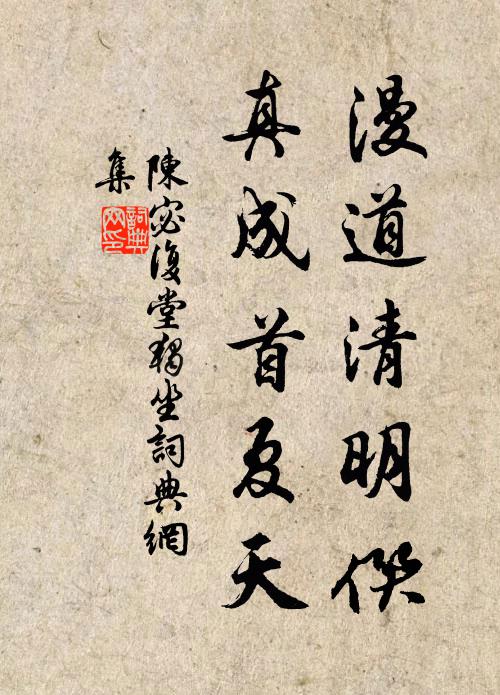 漫道清明候
真成首夏天
陳宓復堂獨坐詞典網
集
詞典
网印